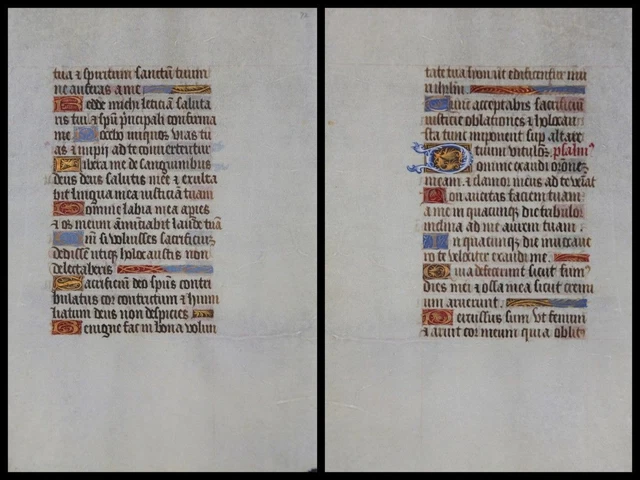 tua & spiritum sanctū tuum
ne auferas a me
Redde michi leticiā saluta
ris tui & spū pncipali confirma
me Docebo iniquos vias tu
as & impii ad te conuertentur
Libera me de sanguinibus
deus deus salutis mee & exulta
bit lingua mea iusticiā tuam
Domine labia mea apies
& os meum annūtiabit laudē tuā
Qm̄ si voluisses sacrificiū
dedissē utiqz holocaustis non
delectaberis
Sacrificiū deo spūs contri
bulatus cor contritum & humi
liatum deus non despicies
Benigne fac in bona volun
tate tua syon ut edificentur mu
ri ihrlm.
Tunc acceptabis sacrificiū
iusticie oblationes & holocau
sta tunc imponent sup altare
tuum vitulos. psalmꝰ
Domine exaudi orōnē
meam. & clamor meus ad te veniat
Non auertas faciem tuam
a me in quacunqz die tribulor
inclina ad me aurem tuam:
In quacunqz die inuocaue
ro te velociter exaudi me.
Quia defecerunt sicut fumꝰ
dies mei & ossa mea sicut cremi
um aruerunt.
Percussus sum vt fenum
& aruit cor meum quia oblitꝰ